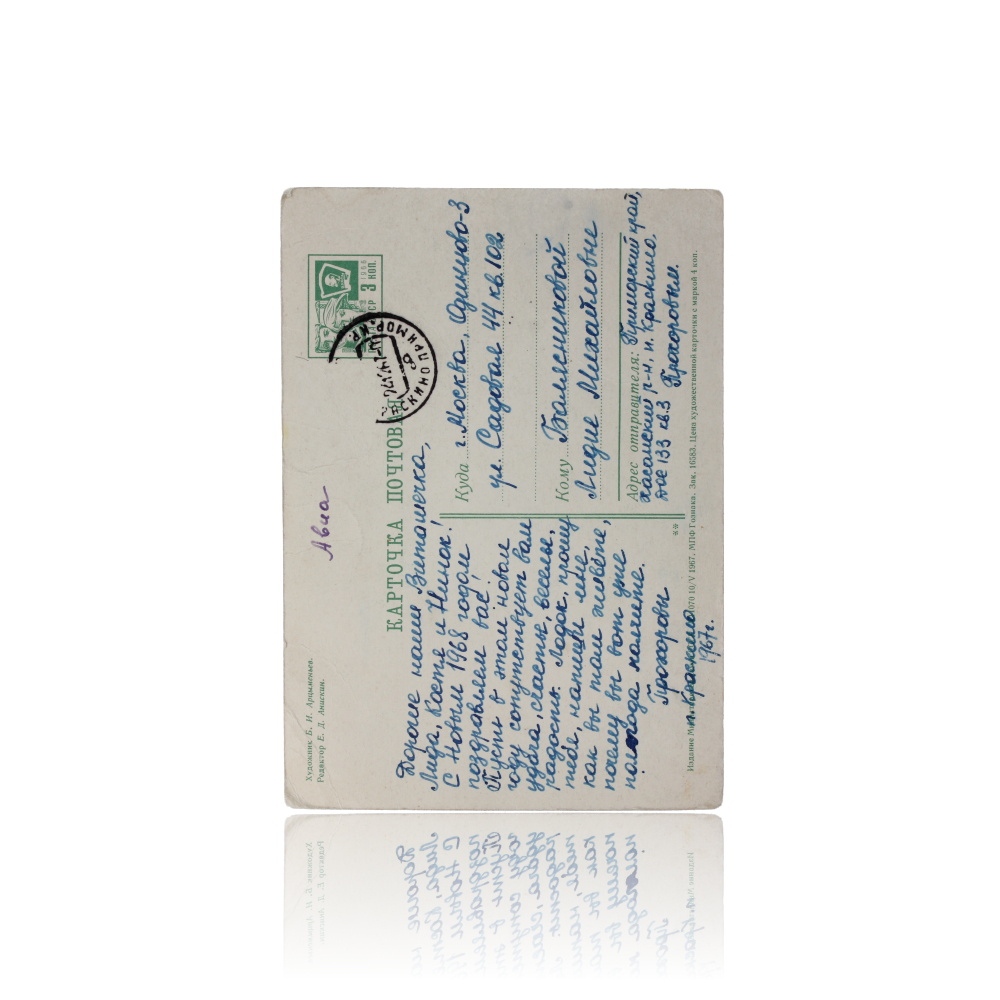 Художник Б. И. Арцыменьев.
Редактор Е. Д. Анискин.
Авиа
3 КОП.
КАРТОЧКА ПОЧТОВАЯ
Дорогие наши Виташечка,
Лида, Костя и Нинок!
С Новым 1968 годом
поздравляем вас!
Пусть в этом новом
году сопутствует вам
удача, счастье, веселье,
радость. Лидок, прошу
тебя, напиши мне,
как вы там живёте,
почему вы вот уже
полгода молчите.
Прохоровы
п. Краскино
1967г.
Куда г. Москва, Одинцово-3
ул. Садовая 44 кв. 102
Кому Балясниковой
Лидие Михайловне
Адрес отправителя: Приморский край,
Хасанский р-н, п. Краскино
дос 133 кв. 3 Прохоровым.
**
Издание 10/V 1967. МПФ Гознака. Зак. 16583. Цена художественной карточки с маркой 4 коп.